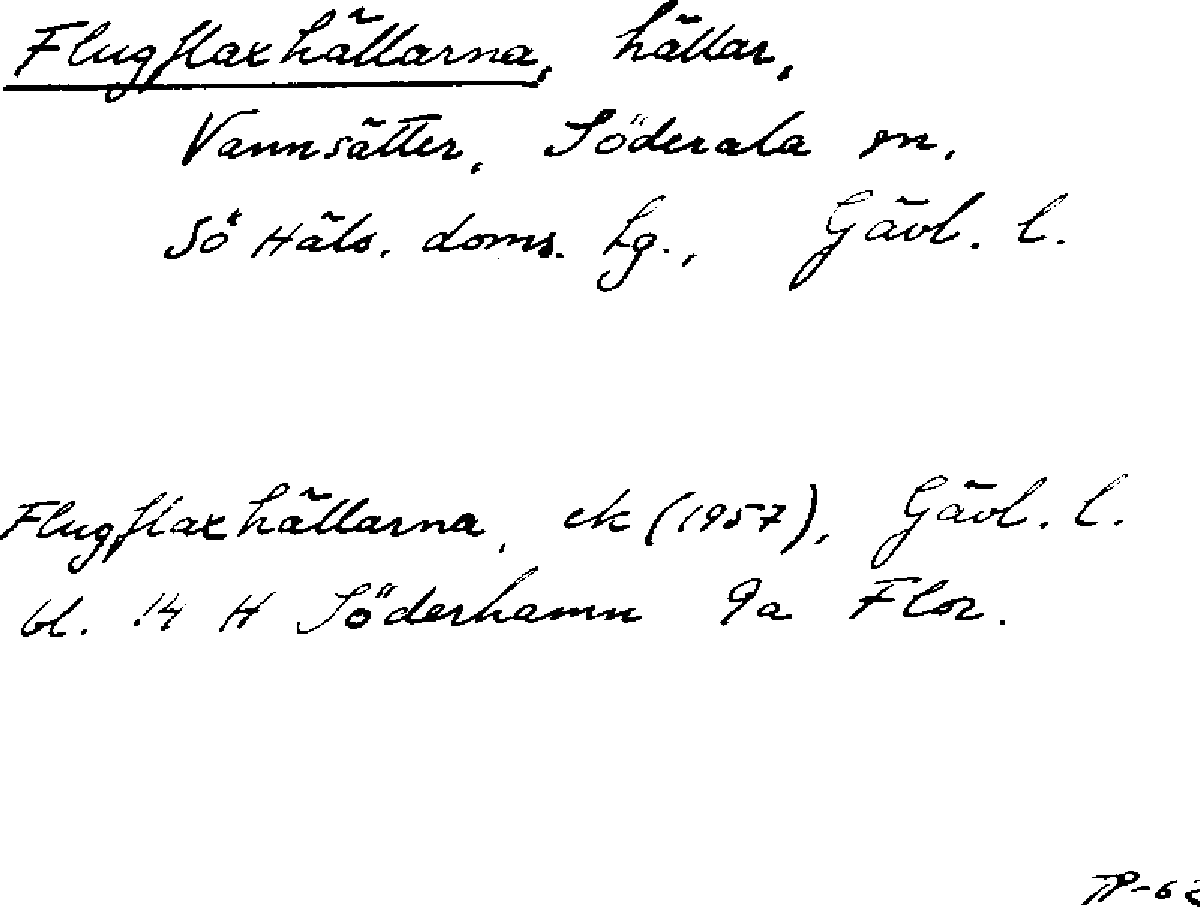 Flugflaxhällarna, hällar,
Vannsätter, Söderala sn.
Sö Häls. doms. hg., Gävl. l.
Flugflaxhällarna, ek (1957), Gävl. l.
bl. 14 H Söderhamn 9a Flor.